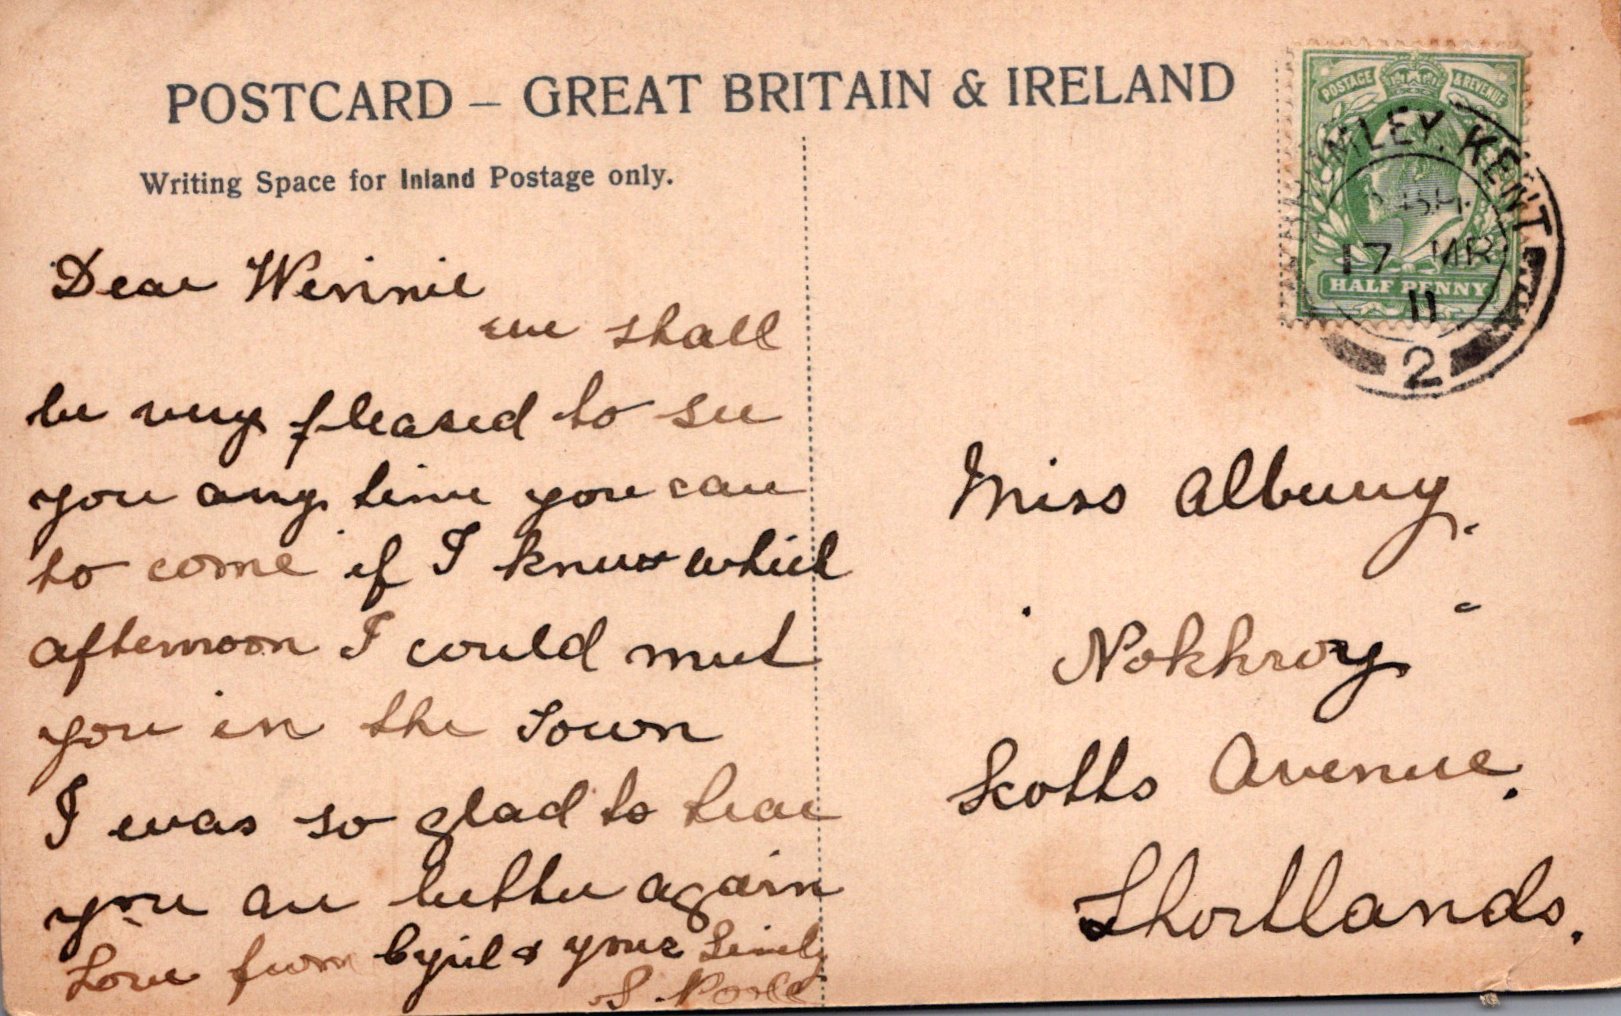 POSTCARD – GREAT BRITAIN & IRELAND
Writing Space for Inland Postage only.
POSTAGE & REVENUE
HALF PENNY
MLEY. KENT
17 MR
11
2
Dear Winnie
we shall
be very pleased to see
you any time you can
to come if I knew which
afternoon I could meet
you in the Town
I was so glad to hear
you are better again
Love from Cyril & yours
S. Poole
Miss Albury.
"Nokhroy"
Scotts Avenue.
Shortlands.